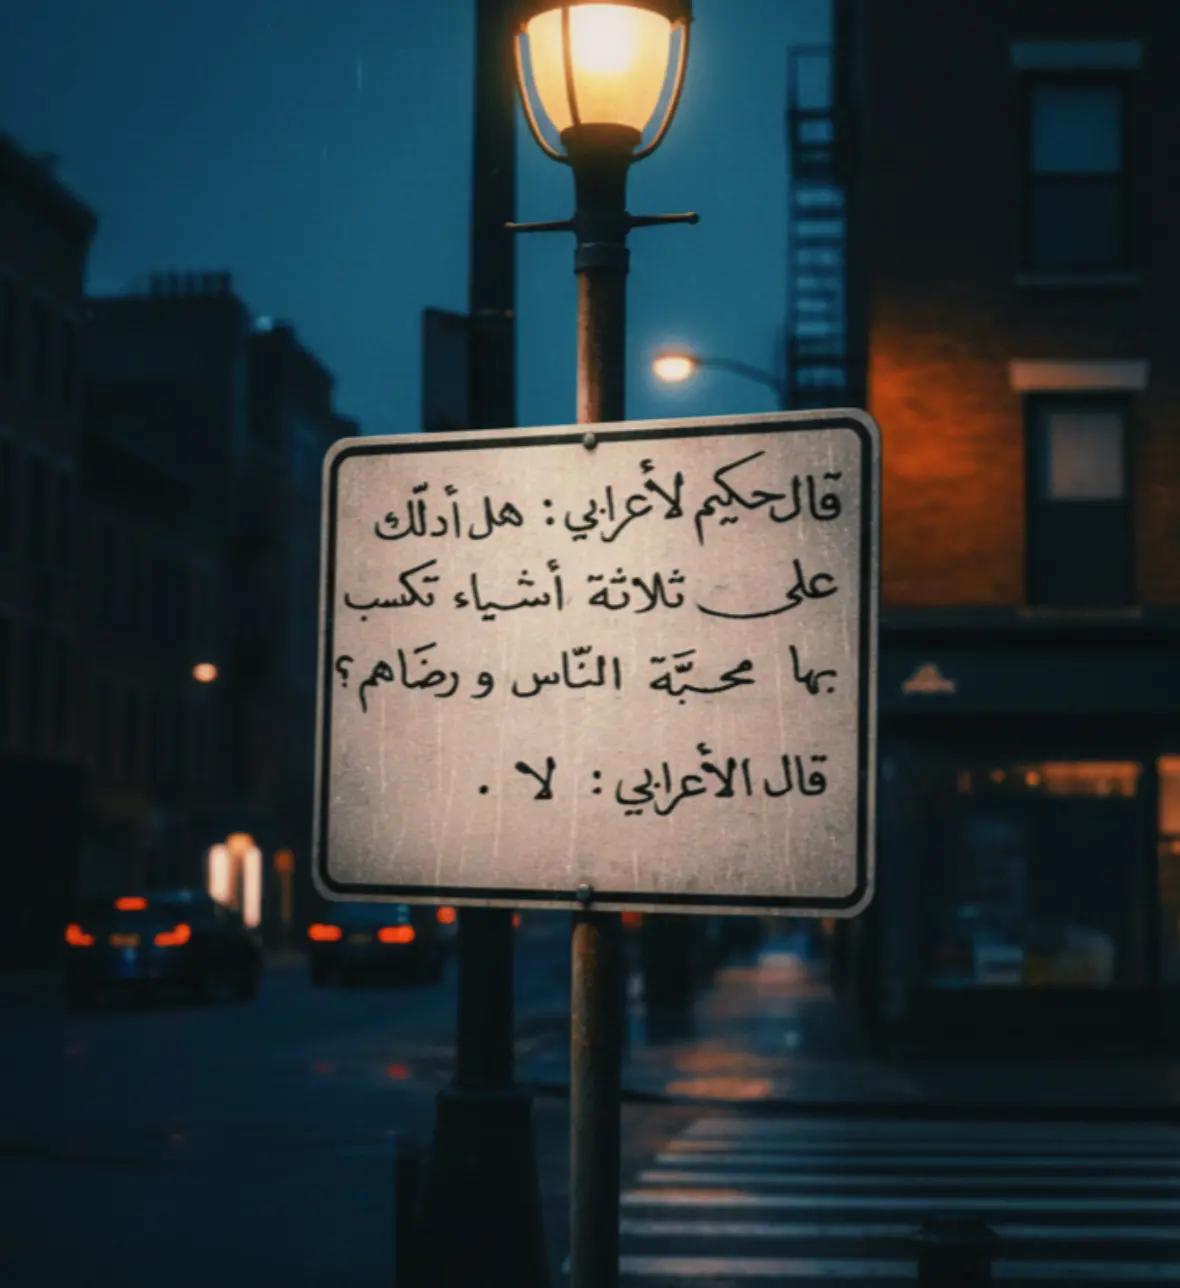 قال حكيم لأعرابي : هل أدلّك
على ثلاثة أشياء تكسب
بها محبَّة النّاس و رضَاهم ؟
قال الأعرابي : لا .